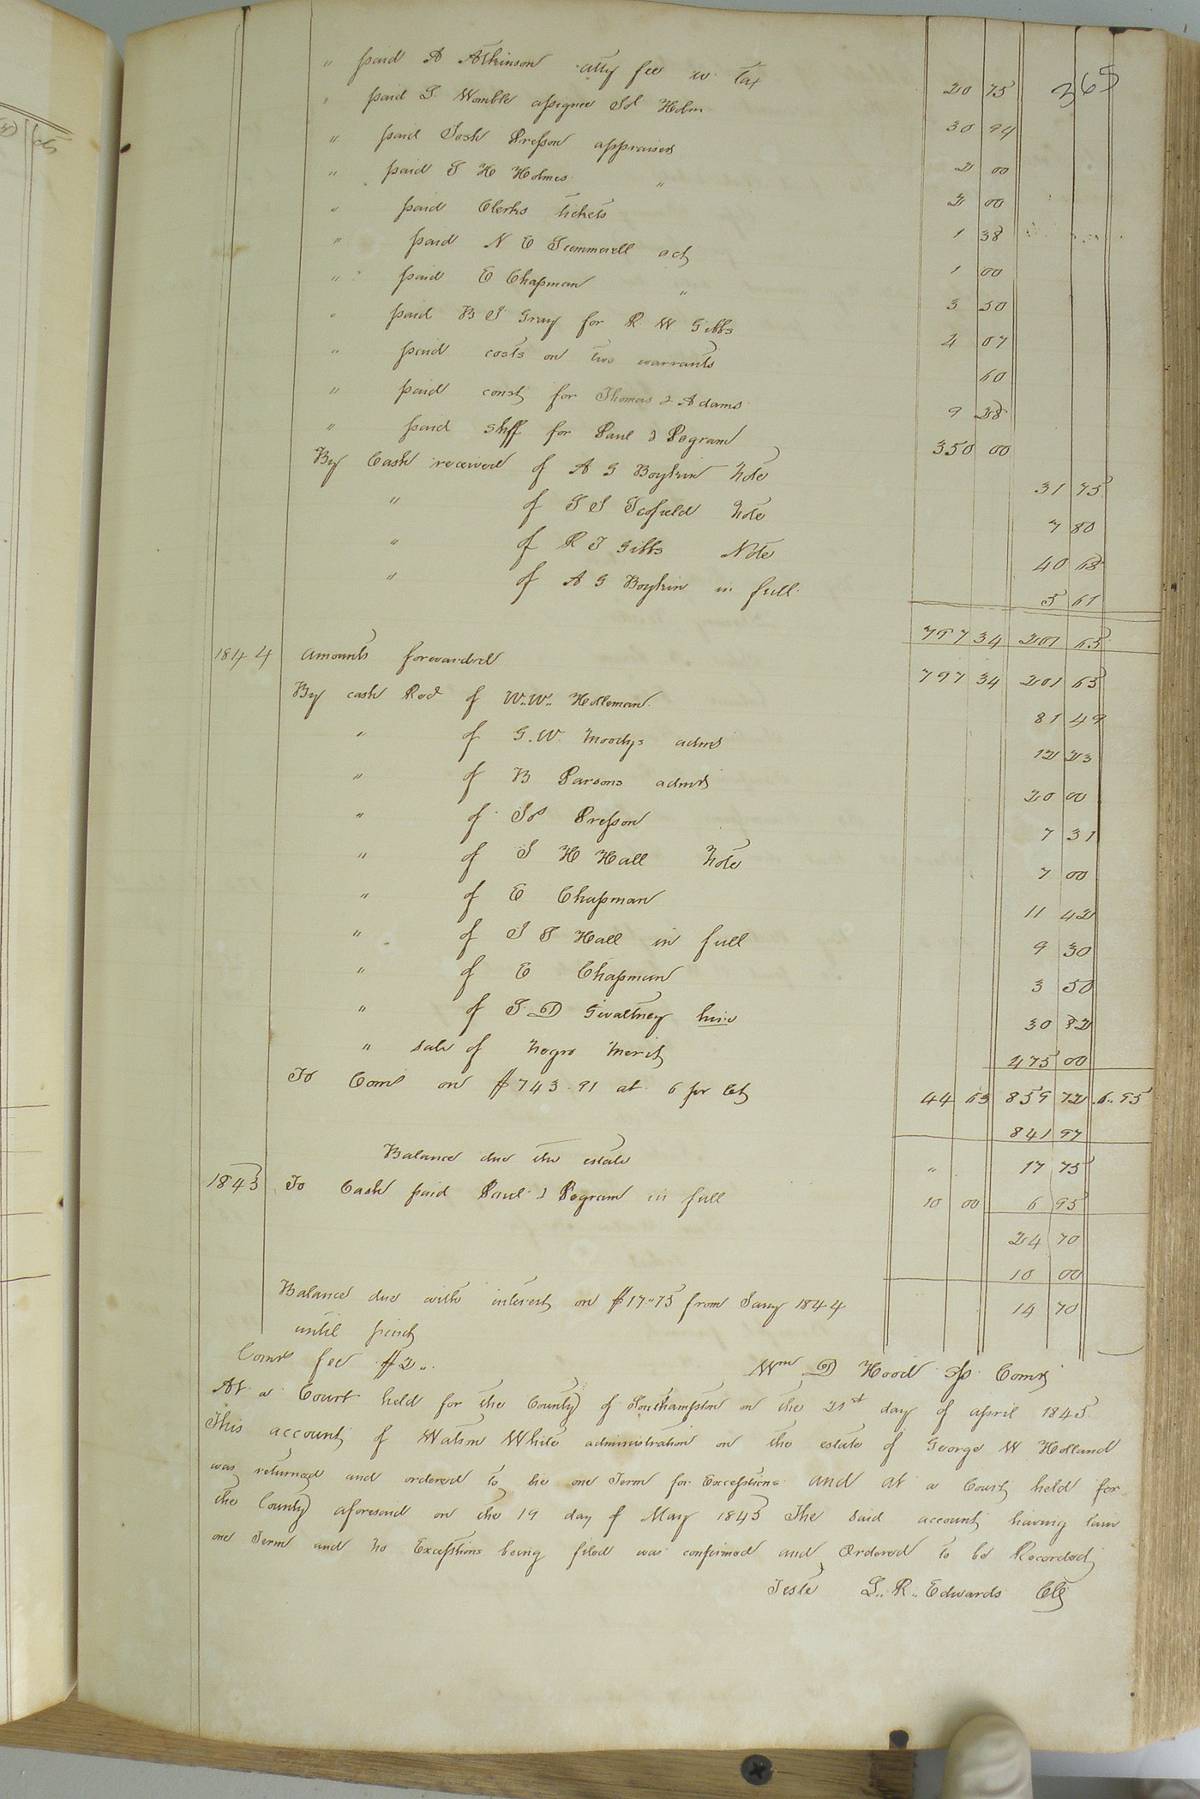 365
" paid A Atkinson atty fee & tax 20 75
" paid S Womble assignee Sol Holm 30 94
" paid Josh Presson appraiser 2 00
" paid S H Holmes " 2 00
" paid Clerks tickets 1 38
" paid N E Scammerell act 1 00
" paid E Chapman " 3 50
" paid B S Gray for R W Gibbs 4 07
" paid costs on two warrants 60
" paid const for Thomas & Adams 9 28
" paid Shff for Paul & Pegram 350 00
By Cash received of A G Boykin Note 31 75
" of S S Scofield Note 7 80
" of R T Gibbs Note 40 68
" of A G Boykin in full 5 61
797 34 201 65
1844 Amounts forwarded 797 34 201 65
By cash Recd of W.W. Holleman 81 49
" of G.W. Moodys adms 12 23
" of B Parsons admrs 20 00
" of Jos Presson 7 31
" of S H Hall Note 7 00
" of E Chapman 11 42
" of S S Hall in full 9 30
" of E Chapman 3 50
" of S D Gwaltney hire 30 82
" sale of Negro 475 00
To Coms on $743.91 at 6 per Ct 44 63 859 72 6.95
841 97
Balance due the estate " 17 75
1843 To Cash paid Paul & Pegram in full 10 00 6 95
24 70
10 00
Balance due with interest on $17.75 from Jany 1844 14 70
until paid
Coms fee $2..
Wm D Hood Comr
At a Court held for the County of Southampton on the 21st day of april 1845
This account of Watson White administration on the estate of George W Holland
was returned and ordered to lie one Term for Exceptions and at a Court held for
the County aforesaid on the 19 day of May 1845 The said account having lain
one Term and no Exceptions being filed was confirmed and Ordered to be Recorded
Teste L. R. Edwards Clk